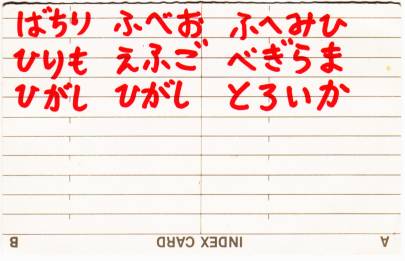 ばちり ふべお ふへみひ
ひりも えふご べぎらま
ひがし ひがし とろいか
B INDEX CARD A